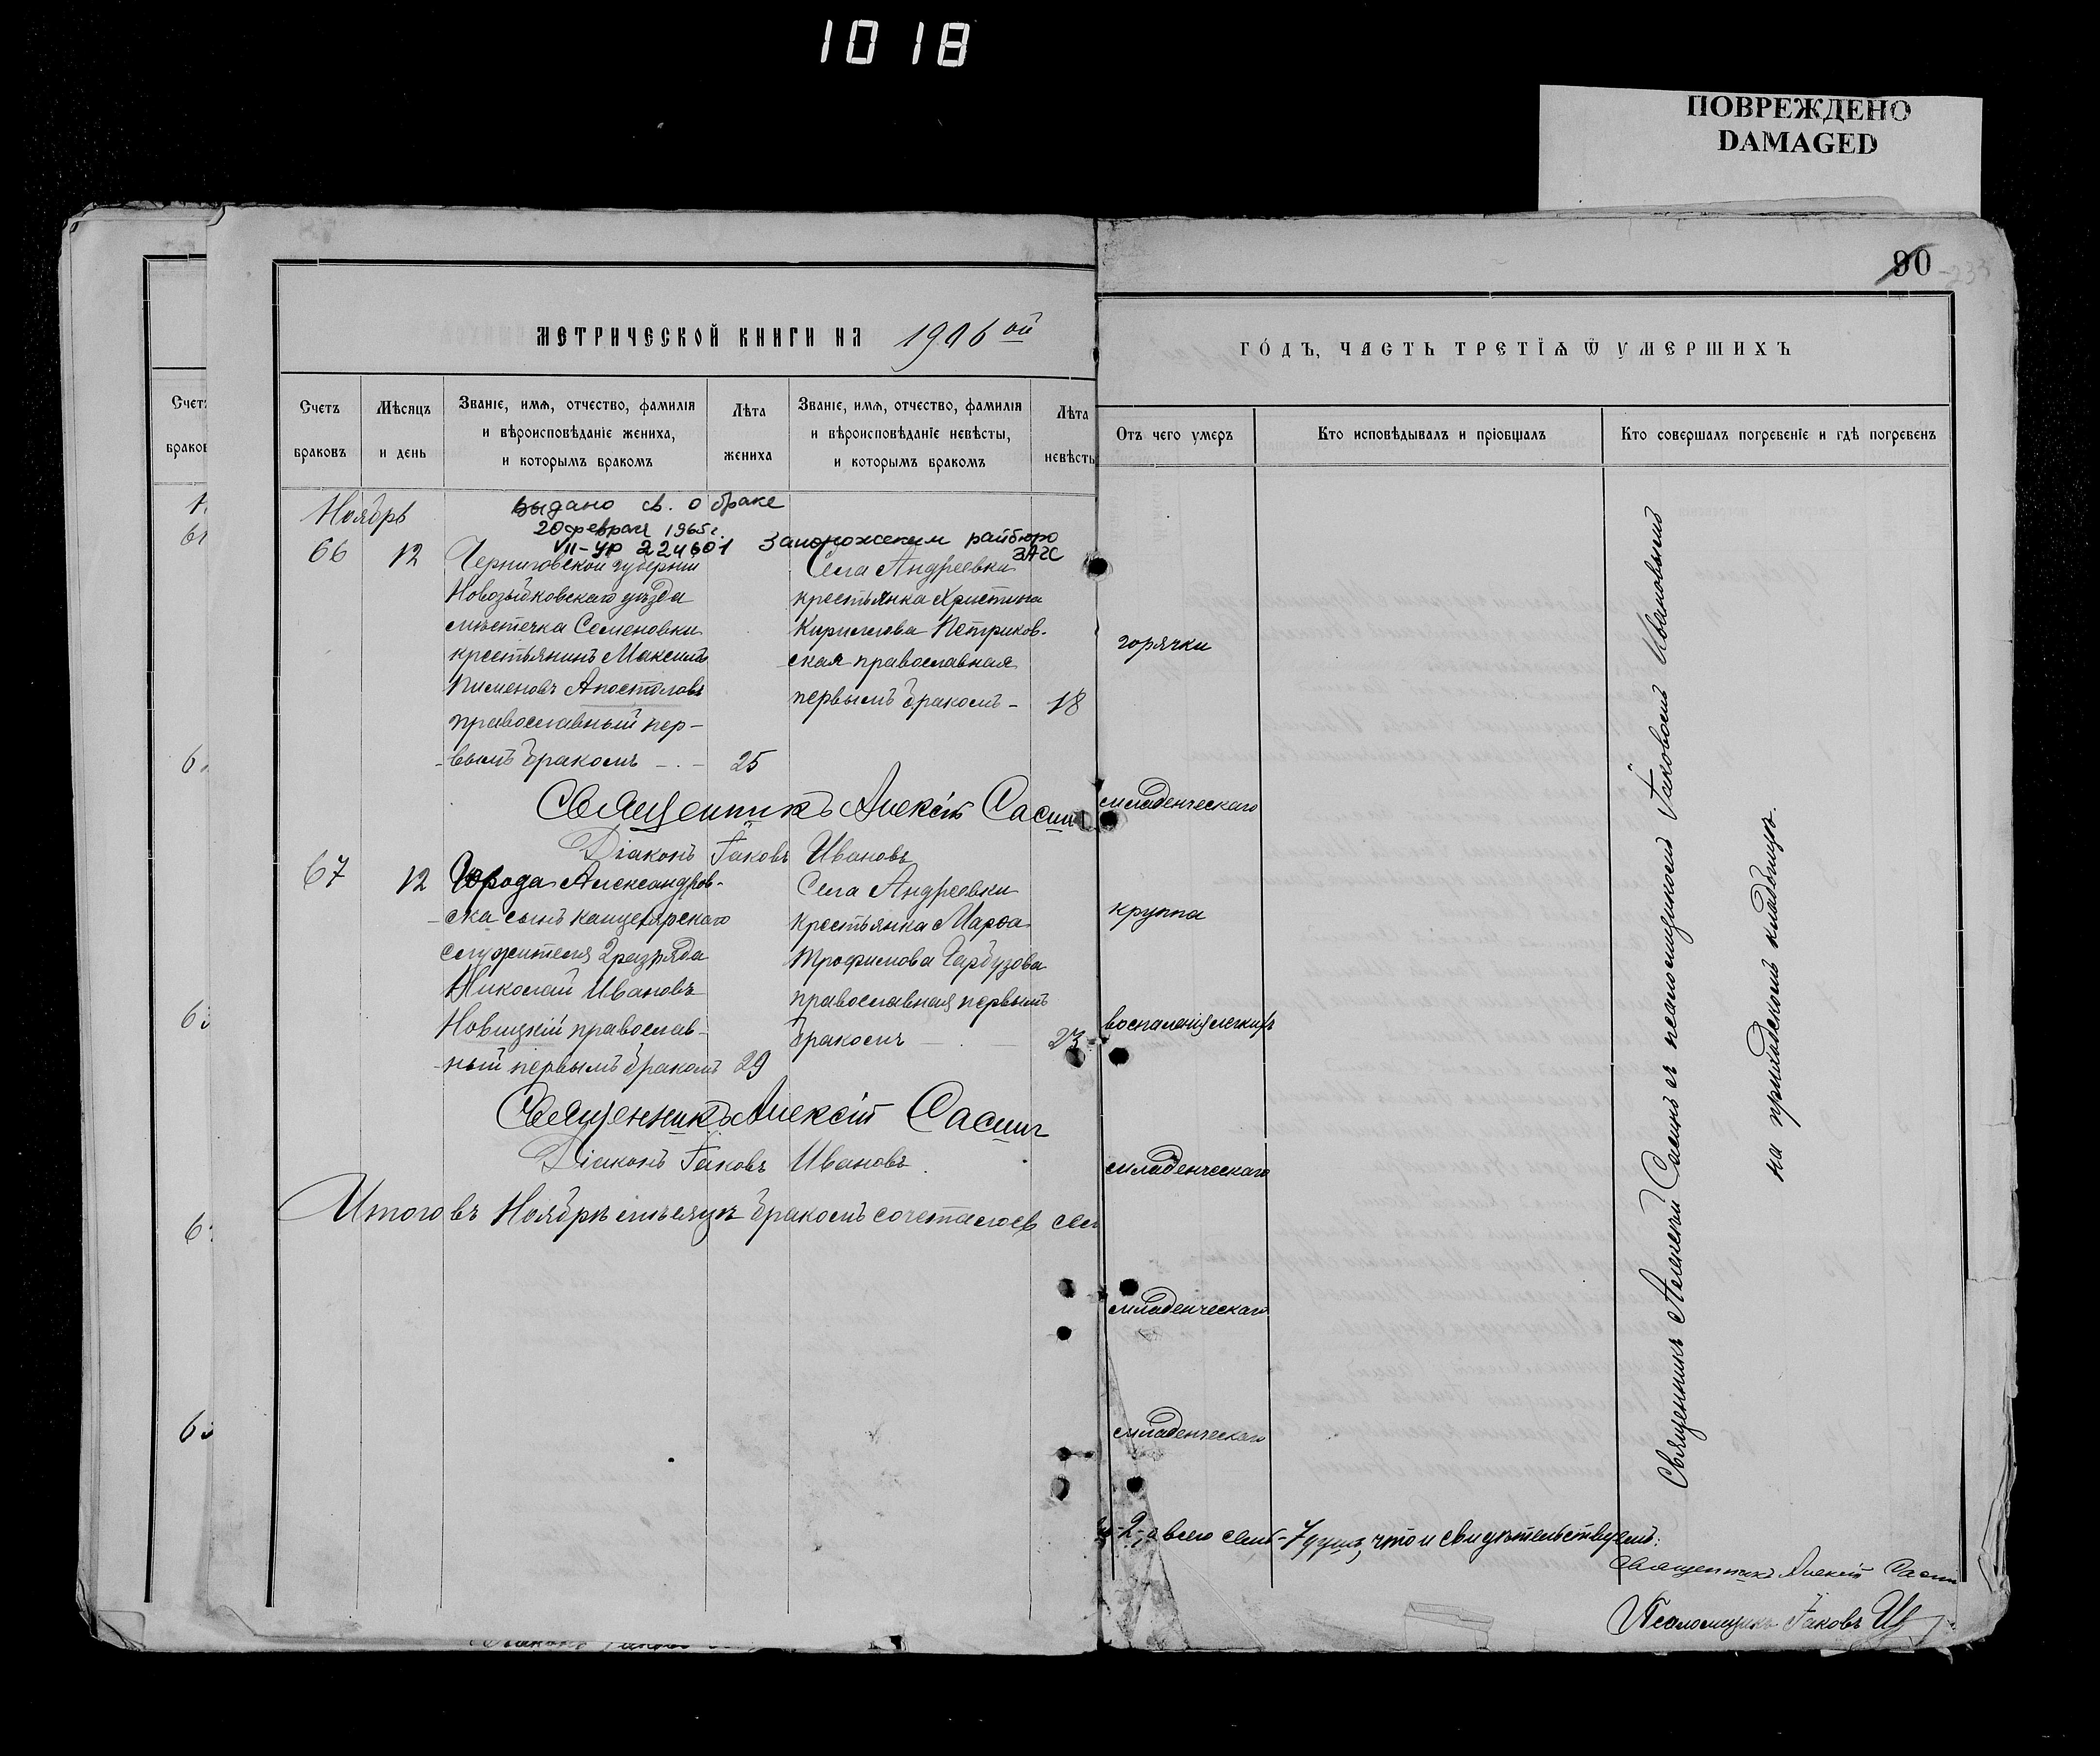 1018
ПОВРЕЖДЕНО
DAMAGED
МЕТРИЧЕСКОЙ КНИГИ НА 1906 ой
Счетъ браковъ
Мѣсяцъ и день
Званіе, имя, отчество, фамилія
и вѣроисповѣданіе жениха,
и которымъ бракомъ
Лѣта жениха
Званіе, имя, отчество, фамилія
и вѣроисповѣданіе невѣсты,
и которымъ бракомъ
Лѣта невѣсты
Ноябрь
выдано св. о браке
20 февраля 1965 г.
VII-УР 224601 Запорожским райбюро
ЗАГС
66
12
Черниговской губерніи
Новозыбковскаго уѣзда
мѣстечка Семеновки
крестьянинъ Максимъ
Пименовъ Апостоловъ
православный пер-
вымъ бракомъ
25
Села Андреевки
крестьянка Христина
Кириллова Петриков-
ская православная
первымъ бракомъ
18
Священникъ Алексій Сасин
Діаконъ Іаковъ Ивановъ
67
12
Города Александров-
ска сынъ канцелярскаго
служителя 2 разряда
Николай Ивановъ
Новицкій православ-
ный первымъ бракомъ
29
Села Андреевки
крестьянка Марѳа
Трофимова Гарбузова
православная первымъ
бракомъ
23
Священникъ Алексій Сасинъ
Діаконъ Іаковъ Ивановъ
Итого въ Ноябрѣ мѣсяцѣ бракомъ сочеталось сем
90
ГОДЪ, ЧАСТЬ ТРЕТІЯ Ѿ УМЕРШИХЪ
Отъ чего умеръ
Кто исповѣдывалъ и пріобщалъ
Кто совершалъ погребеніе и гдѣ погребенъ
горячки
младенческаго
круппа
воспаленія легкихъ
младенческаго
младенческаго
младенческаго
Священникъ Алексѣй Сасинъ съ псаломщикомъ Іаковомъ Ивановымъ
на приходскомъ кладбищѣ.
-2- а всего семь -7 душъ, что и свидѣтельствуемъ:
Священникъ Алексій Сасин
Псаломщикъ Іаковъ Ив